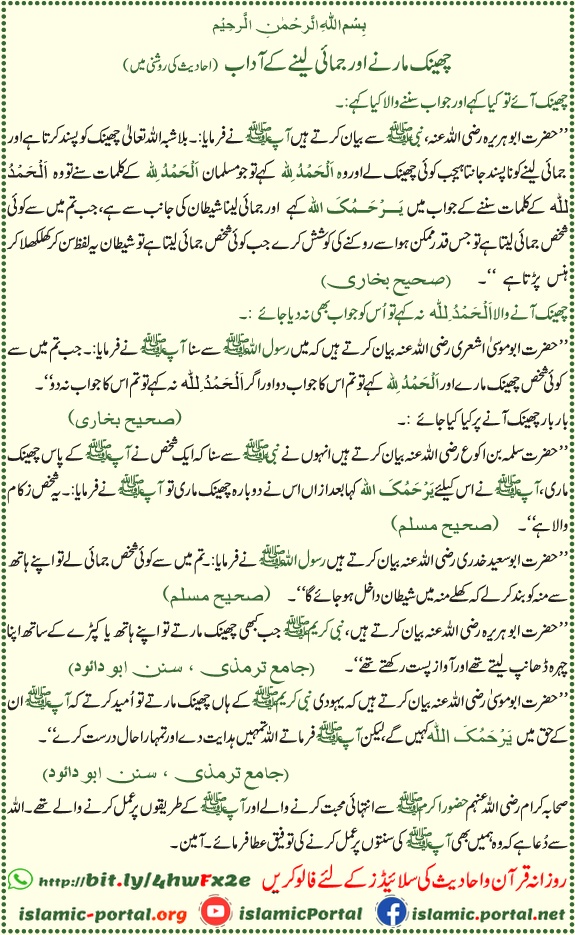 بِسْمِ اللّٰهِ الرَّحْمٰنِ الرَّحِيْمِ
چھینک مارنے اور جمائی لینے کے آداب (احادیث کی روشنی میں)
چھینک آئے تو کیا کہے اور جواب سننے والا کیا کہے:۔
’’حضرت ابو ہریرہ رضی اللہ عنہ، نبی ﷺ سے بیان کرتے ہیں آپ ﷺ نے فرمایا:۔ بلاشبہ اللہ تعالیٰ چھینک کو پسند کرتا ہے اور
جمائی لینے کو ناپسند جانتا ہے جب کوئی چھینک لے اور وہ اَلْحَمْدُلِلّٰہ کہے تو جو مسلمان اَلْحَمْدُلِلّٰہ کے کلمات سنے تو وہ اَلْحَمْدُ
لِلّٰہ کے کلمات سننے کے جواب میں یَرْحَمُکَ اللّٰہ کہے اور جمائی لینا شیطان کی جانب سے ہے، جب تم میں سے کوئی
شخص جمائی لیتا ہے تو جس قدر ممکن ہو اسے روکنے کی کوشش کرے جب کوئی شخص جمائی لیتا ہے تو شیطان یہ لفظ سن کر کھلکھلا کر
ہنس پڑتا ہے ‘‘۔ (صحیح بخاری)
چھینک آنے والا اَلْحَمْدُلِلّٰہ نہ کہے تو اُس کو جواب بھی نہ دیا جائے :۔
’’حضرت ابو موسیٰ اشعری رضی اللہ عنہ بیان کرتے ہیں کہ میں رسول اللہ ﷺ سے سنا آپ ﷺ نے فرمایا:۔ جب تم میں سے
کوئی شخص چھینک مارے اور اَلْحَمْدُلِلّٰہ کہے تو تم اس کا جواب دو اور اگر اَلْحَمْدُلِلّٰہ نہ کہے تو تم اس کا جواب نہ دو‘‘۔
بار بار چھینک آنے پر کیا کیا جائے :۔ (صحیح بخاری)
’’حضرت سلمہ بن اکوع رضی اللہ عنہ بیان کرتے ہیں انہوں نے نبی ﷺ سے سنا کہ ایک شخص نے آپ ﷺ کے پاس چھینک
ماری، آپ ﷺ نے اس کیلئے یَرْحَمُکَ اللّٰہ کہا بعد ازاں اس نے دوبارہ چھینک ماری تو آپ ﷺ نے فرمایا:۔ یہ شخص زکام
والا ہے‘‘۔ (صحیح مسلم)
’’حضرت ابو سعید خدری رضی اللہ عنہ بیان کرتے ہیں رسول اللہ ﷺ نے فرمایا:۔ تم میں سے کوئی شخص جمائی لے تو اپنے ہاتھ
سے منہ کو بند کرلے کہ کھلے منہ میں شیطان داخل ہو جائے گا‘‘۔ (صحیح مسلم)
’’حضرت ابو ہریرہ رضی اللہ عنہ بیان کرتے ہیں، نبی کریم ﷺ جب کبھی چھینک مارتے تو اپنے ہاتھ یا کپڑے کے ساتھ اپنا
چہرہ ڈھانپ لیتے تھے اور آواز پست رکھتے تھے‘‘۔ (جامع ترمذی ، سنن ابو دائود)
’’حضرت ابو موسیٰ رضی اللہ عنہ بیان کرتے ہیں کہ یہودی نبی کریم ﷺ کے ہاں چھینک مارتے تو اُمید کرتے کہ آپ ﷺ ان
کے حق میں یَرْحَمُکَ اللّٰہ کہیں گے، لیکن آپ ﷺ فرماتے اللہ تمہیں ہدایت دے اور تمہارا حال درست کرے‘‘۔
(جامع ترمذی ، سنن ابو دائود)
صحابہ کرام رضی اللہ عنہم حضور اکرم ﷺ سے انتہائی محبت کرنے والے اور آپ ﷺ کے طریقوں پر عمل کرنے والے تھے۔ اللہ
سے دُعا ہے کہ وہ ہمیں بھی آپ ﷺ کی سنتوں پر عمل کرنے کی توفیق عطا فرمائے۔ آمین۔
روزانہ قرآن و احادیث کی سلائیڈز کے لئے فالو کریں http://bit.ly/4hwFx2e
islamic-portal.org islamicPortal islamic.portal.net